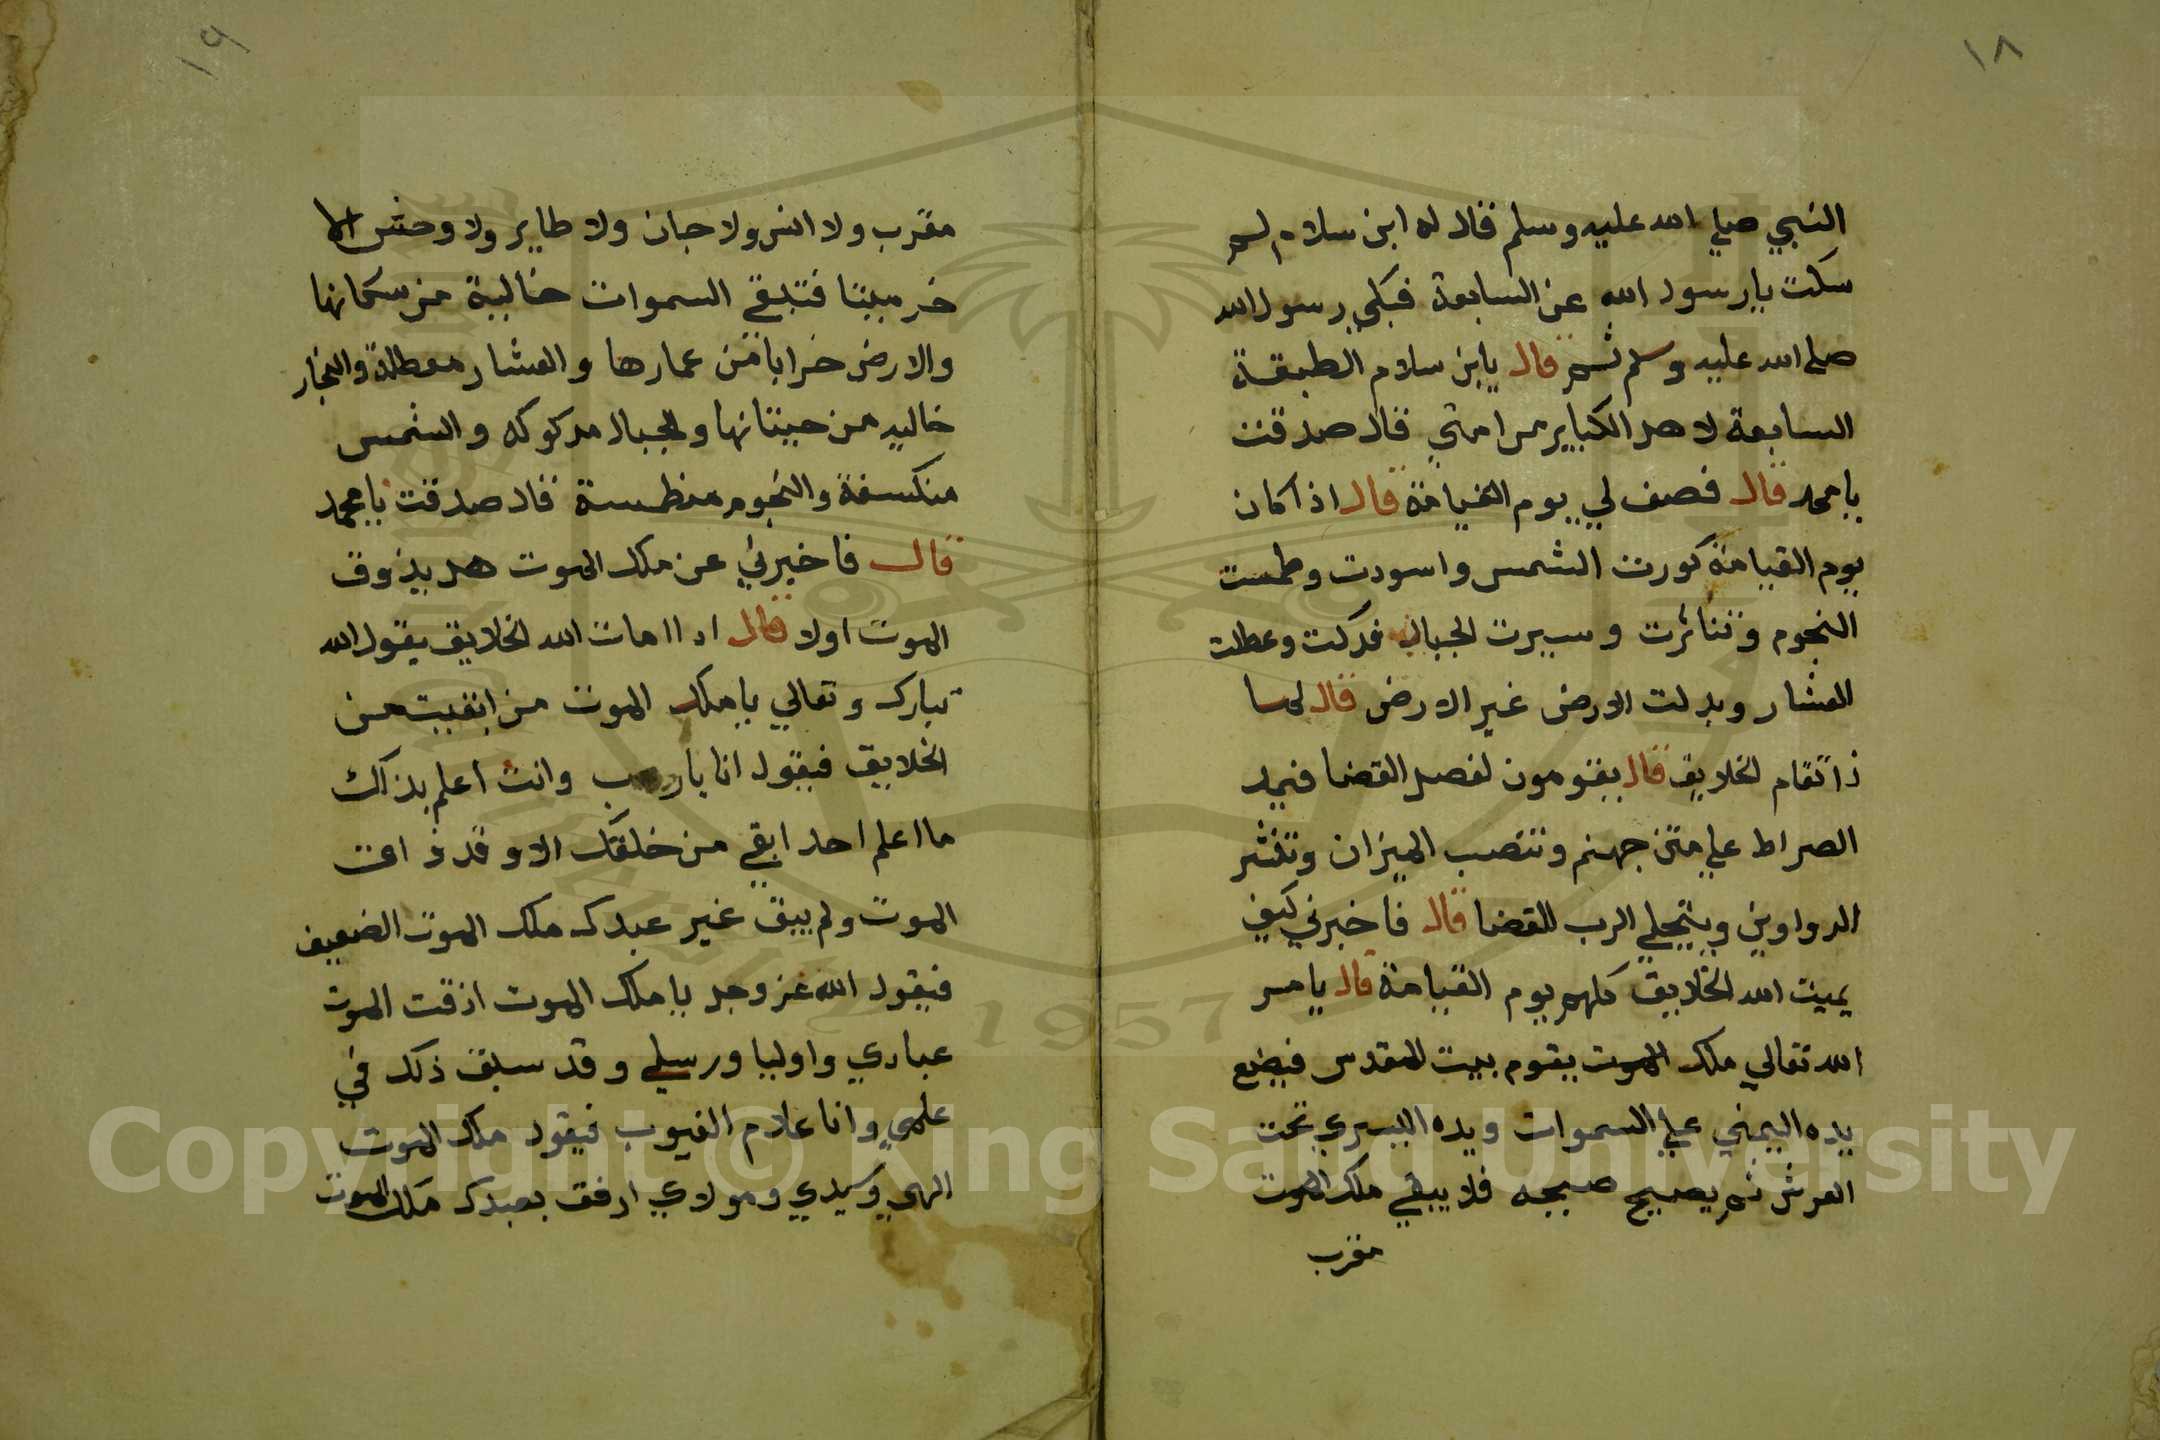 ١٨
النبي صلي الله عليه وسلم فقال له ابن سلام لم
سكت يارسول الله عن السابعة فبكي رسول الله
صلي الله عليه وسلم ثم قال يابن سلام الطبقة
السابعة لاهل الكباير من امتي قال صدقت
يا محمد قال فصف لي يوم القيامة قال اذا كان
يوم القيامة كورت الشمس واسودت وطمست
النجوم وتناثرت وسيرت الجبال فدكت وعطلت
العشار وبدلت الارض غير الارض قال لما
ذا تقام الخلايق قال يقومون لفصل القضا فيمد
الصراط علي متن جهنم وتنصب الميزان وتنشر
الدواوين ويتجلي الرب للقضا قال فاخبرني كيف
يميت الله الخلايق كلهم يوم القيامة قال يامر
الله تعالي ملك الموت يقوم ببيت المقدس فيضع
يده اليمني علي السموات ويده اليسري تحت
العرش ثم يصيح صيحه فلا يبقي ملك الموت
مقرب
١٩
مقرب ولا انس ولا جان ولا طاير ولا وحش الا
خر ميتا فتبقي السموات خالية من سكانها
والارض خرابا من عمارها والعشار معطلة والبحار
خاليه من حيتانها والجبال مدكوكه والشمس
منكسفة والنجوم منطمسة قال صدقت يا محمد
قال فاخبرني عن ملك الموت هل يذوق
الموت اولا قال اذا امات الله الخلايق يقول الله
تبارك وتعالي يا ملك الموت من ابقيت من
الخلايق فيقول انا يارب وانت اعلم بذالك
ما اعلم احد ابقي من خلقك الا وقد ذاقت
الموت ولم يبق غير عبدك ملك الموت الضعيف
فيقول الله عز وجل يا ملك الموت اذقت الموت
عبادي واوليا ورسلي وقد سبق ذلك في
علمي وانا علام الغيوب فيقول ملك الموت
الهي وسيدي ومولاي ارفق بعبدك ملك الموت
1957
Copyright © King Saud University